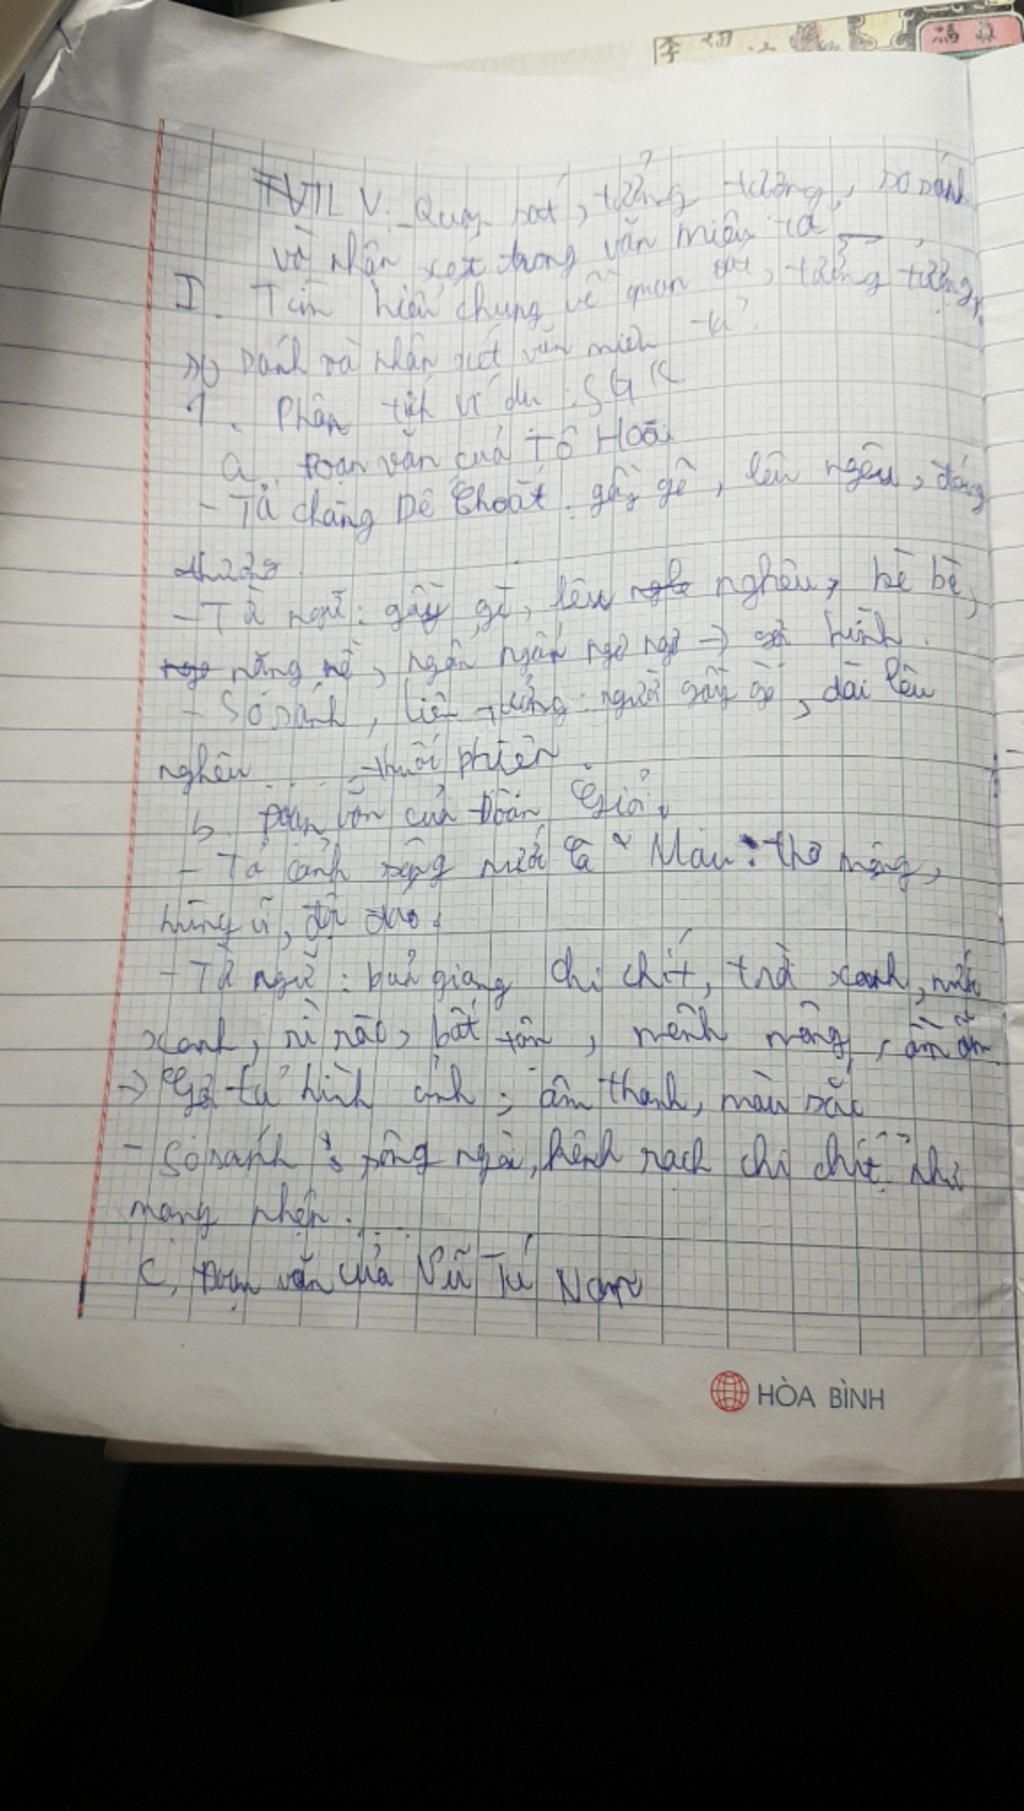 TVTLV. Quan sát, tưởng tượng, so sánh
và nhận xét trong văn miêu tả
I. Tìm hiểu chung về quan sát, tưởng tượng,
so sánh và nhận xét văn miêu tả.
1. Phân tích ví dụ: SGK
a. Đoạn văn của Tô Hoài
- Tả chàng Dế Choắt: gầy gò, lêu nghêu, đáng
thương
- Từ ngữ: gầy gò, lêu nghêu, bè bè,
nặng nề, ngẩn ngẩn ngơ ngơ → hình.
- So sánh, liên tưởng: người gầy gò, dài lêu
nghêu ... thuốc phiện
b. Đoạn văn của Đoàn Giỏi.
- Tả cảnh sông nước Cà Mau: thơ mộng,
hùng vĩ,
- Từ ngữ: bủa giăng chi chít, trời xanh, nước
xanh, rì rào, bất tận, mênh mông, ầm ầm
→ Gợi tả hình ảnh, âm thanh, màu sắc
- So sánh: sông ngòi, kênh rạch chi chít như
mạng nhện.
c, Đoạn văn của Vũ Tú Nam
HÒA BÌNH